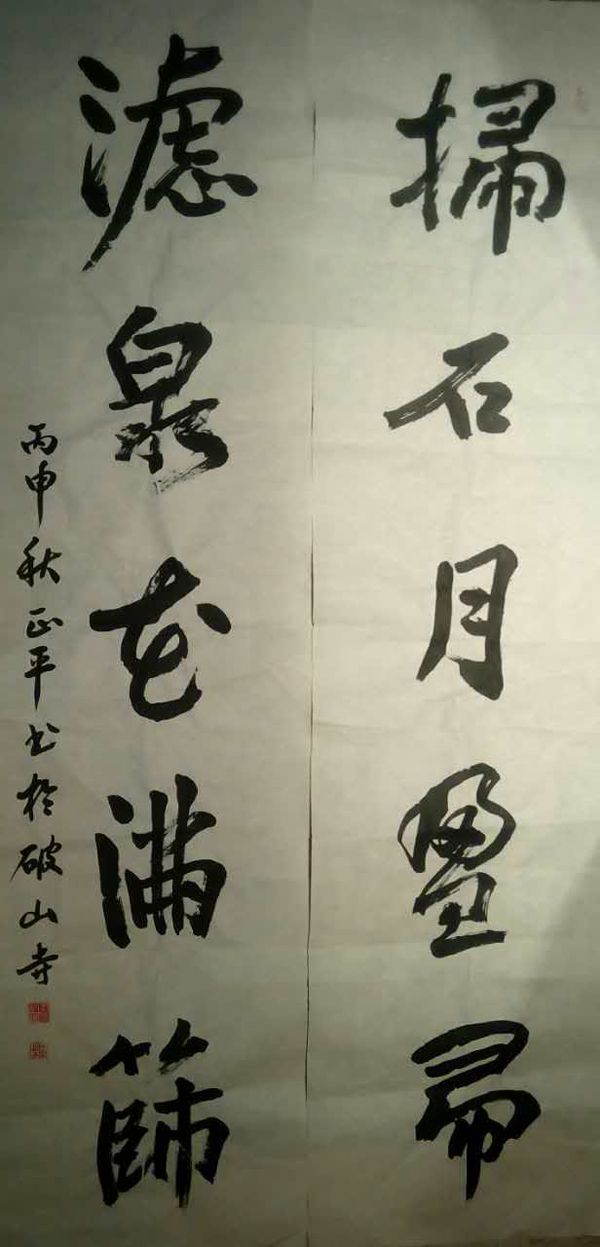 掃石月盈帚
濾泉花滿篩
丙申秋正平书於破山寺